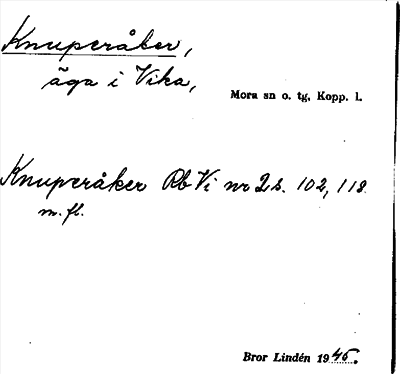 Knuperåker,
äga i Vika,
Mora sn o. tg, Kopp. l.
Knuperåker Rb Vi nr 2 s. 102, 118
m. fl.
Bror Lindén 1945.